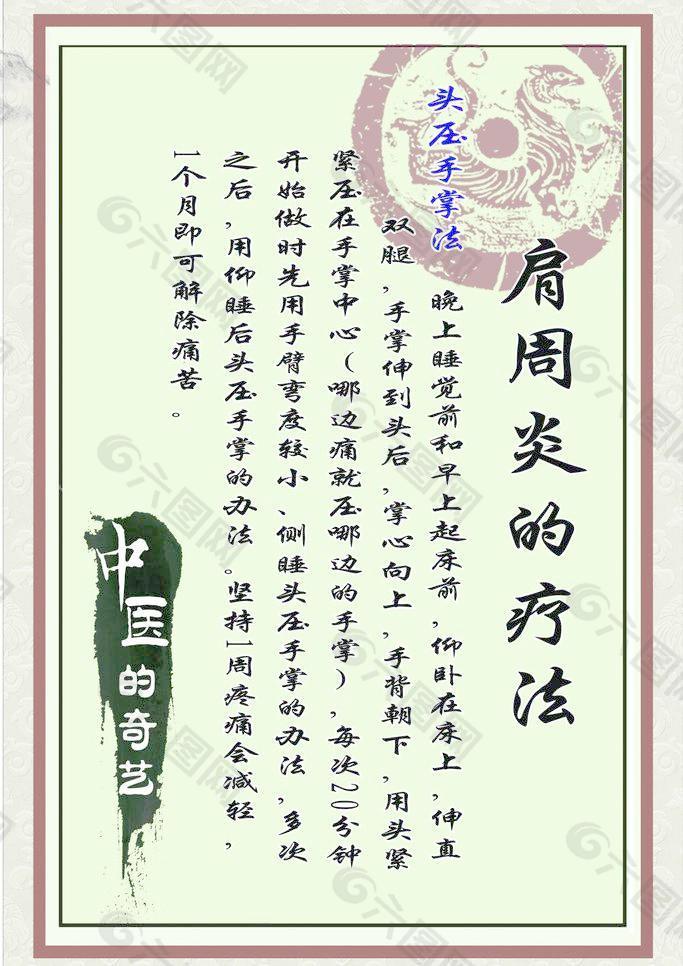 肩周炎的疗法
头压手掌法
晚上睡觉前和早上起床前,仰卧在床上,伸直
双腿,手掌伸到头后,掌心向上,手背朝下,用头紧
紧压在手掌中心(哪边痛就压哪边的手掌),每次20分钟
开始做时先用手臂弯度较小、侧睡头压手掌的办法,多次
之后,用仰睡后头压手掌的办法。坚持1周疼痛会减轻,
1个月即可解除痛苦。
中医的奇艺
六图网